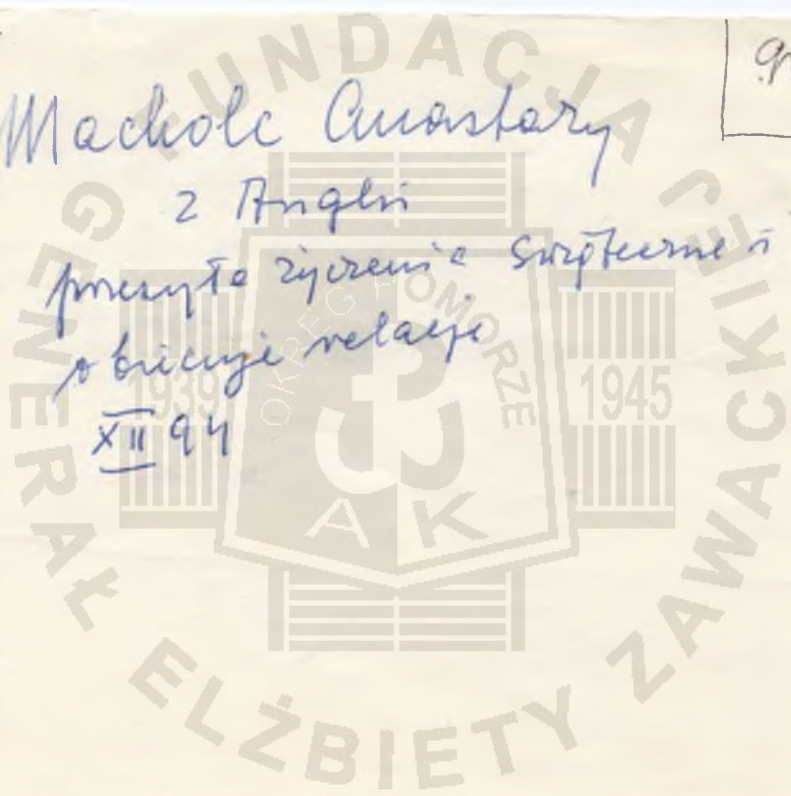 Macholc Anastazy
z Anglii
przesyła życzenia świąteczne i
obiecuje relację
XII 94
FUNDACJA GENERAŁ ELŻBIETY ZAWACKIEJ
OKRĘG POMORZE
1939
1945
AK